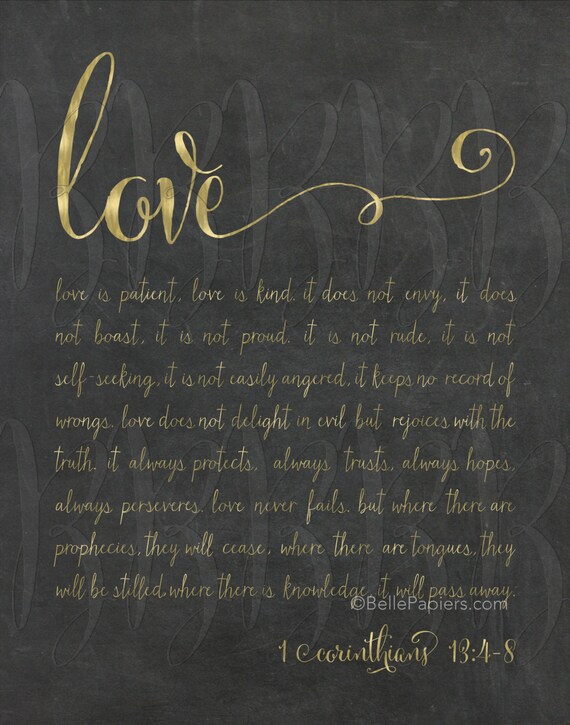 love
love is patient, love is kind. it does not envy, it does
not boast, it is not proud. it is not rude, it is not
self-seeking, it is not easily angered, it keeps no record of
wrongs. love does not delight in evil but rejoices with the
truth. it always protects, always trusts, always hopes,
always perseveres. love never fails. but where there are
prophecies, they will cease, where there are tongues, they
will be stilled, where there is knowledge, it will pass away.
©BellePapiers.com
1 corinthians 13:4-8